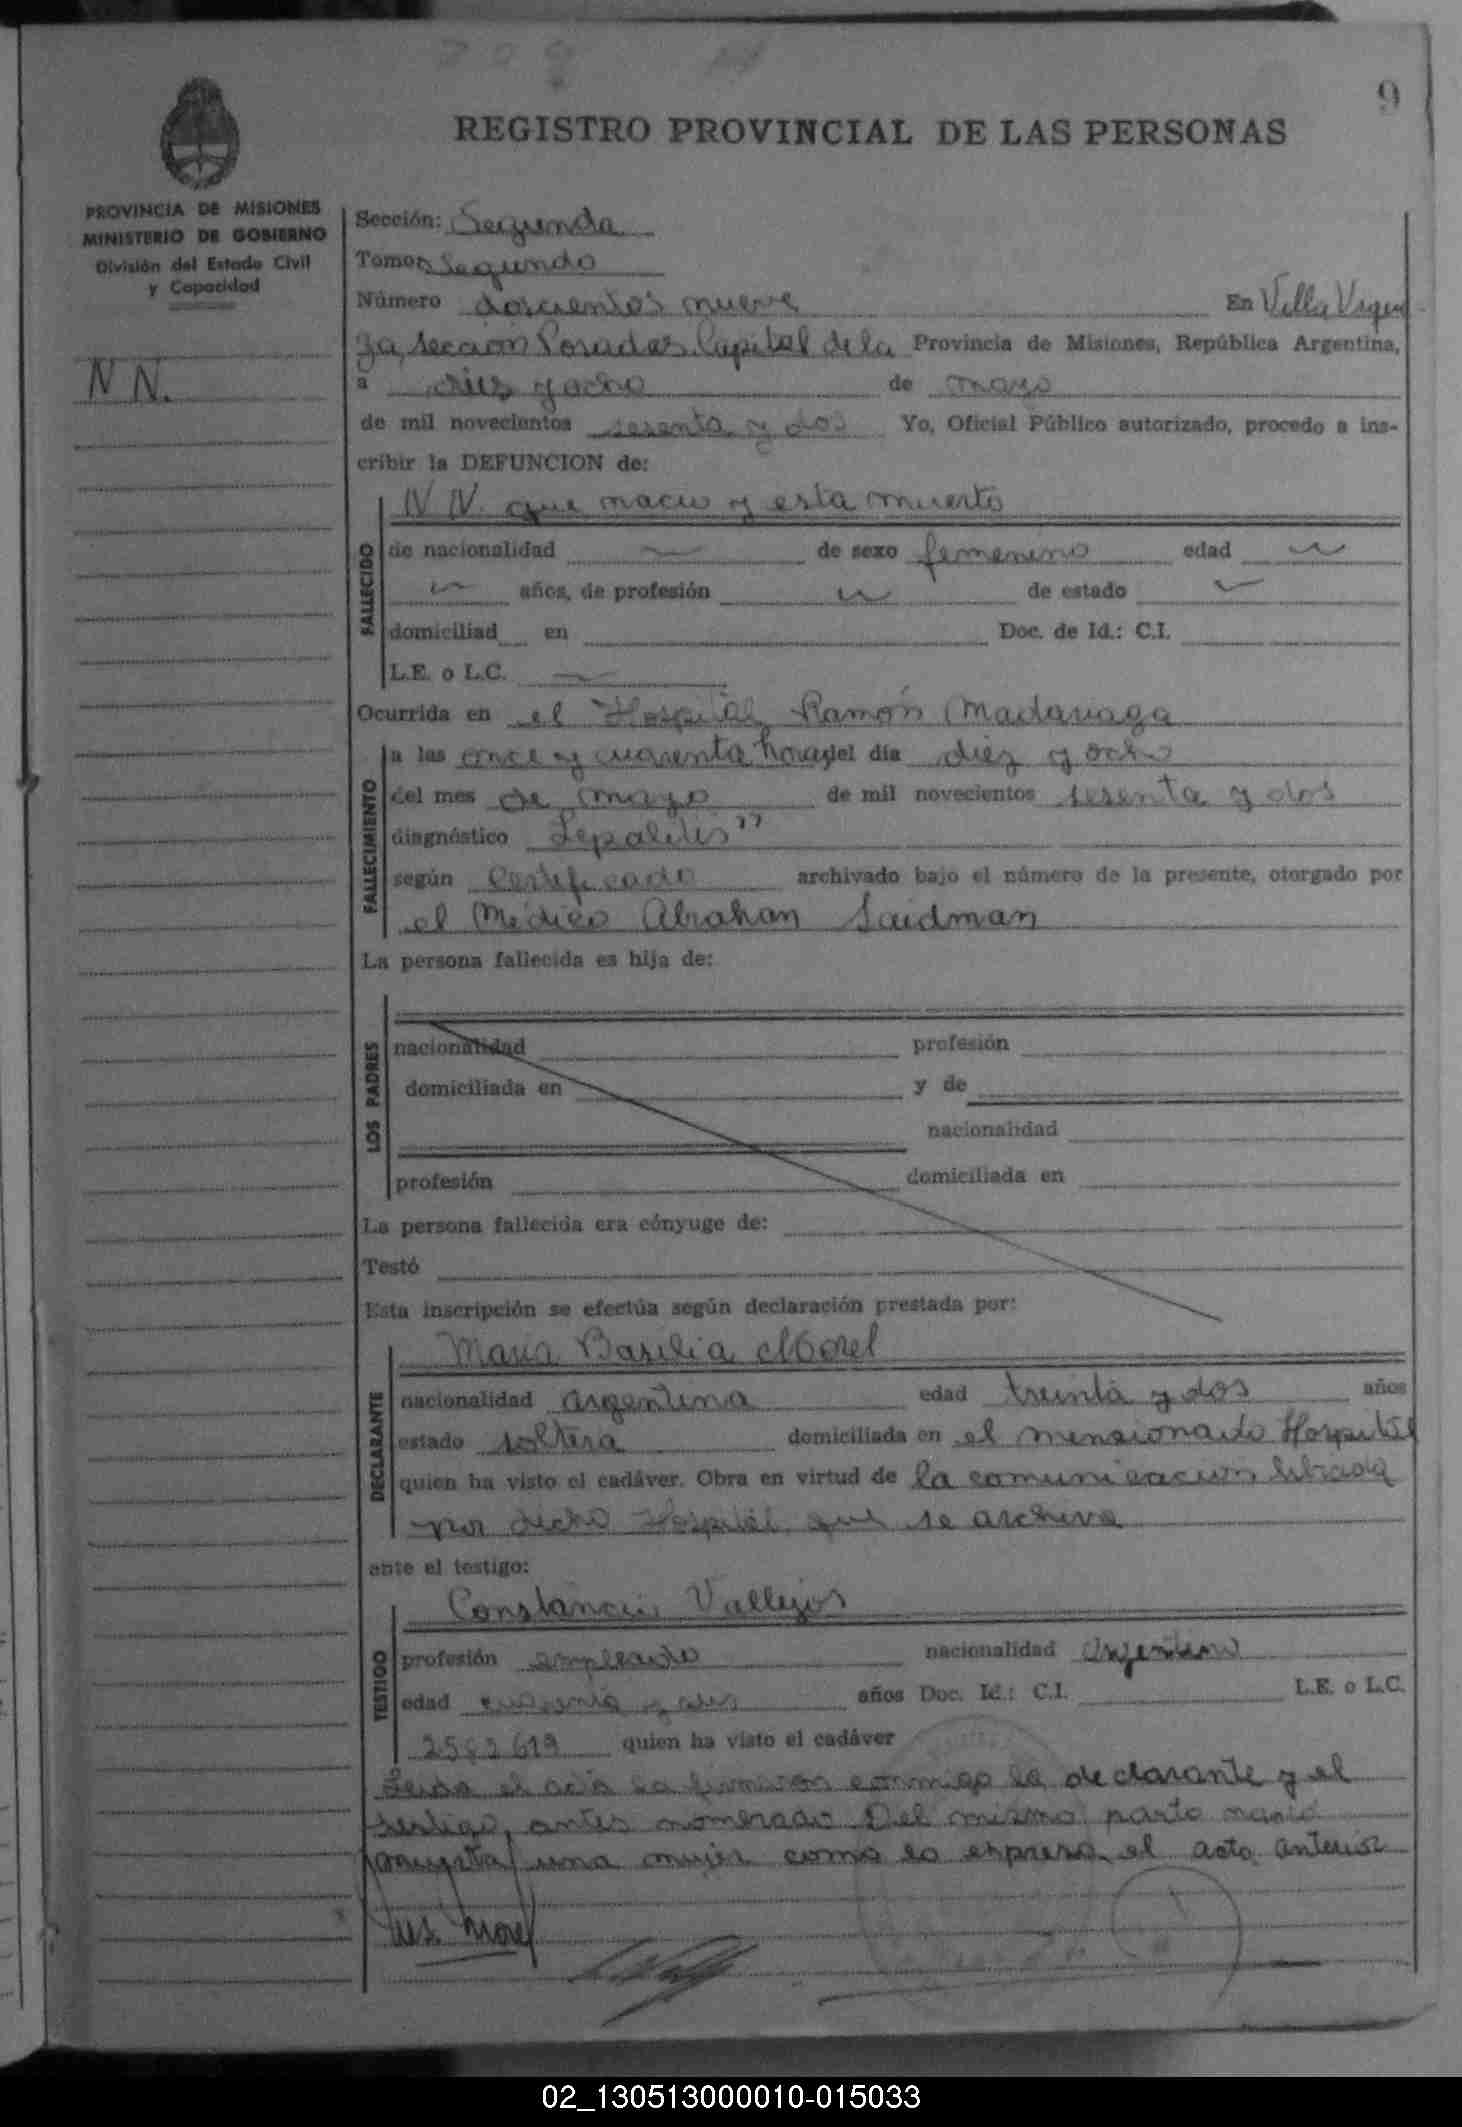 209
9
REGISTRO PROVINCIAL DE LAS PERSONAS
PROVINCIA DE MISIONES
MINISTERIO DE GOBIERNO
División del Estado Civil
y Capacidad
N N.
Sección: Segunda
Tomo: Segundo
Número doscientos nueve En Villa
sección Posadas Capital de la Provincia de Misiones, República Argentina,
a diez y ocho de mayo
de mil novecientos sesenta y dos Yo, Oficial Público autorizado, procedo a ins-
cribir la DEFUNCION de:
N N. que nacio y esta muerto
FALLECIDO
de nacionalidad de sexo femenino edad
años, de profesión de estado
domiciliad en Doc. de Id.: C.I.
L.E. o L.C.
Ocurrida en el Hospital Ramón Madariaga
FALLECIMIENTO
a las once y cuarenta horas del día diez y ocho
del mes de mayo de mil novecientos sesenta y dos
diagnóstico
según Certificado archivado bajo el número de la presente, otorgado por
el Médico Abrahan Saidman
La persona fallecida es hija de:
LOS PADRES
nacionalidad profesión
domiciliada en y de
nacionalidad
profesión domiciliada en
La persona fallecida era cónyuge de:
Testó
Esta inscripción se efectúa según declaración prestada por:
DECLARANTE
Maria Basilia Morel
nacionalidad argentina edad treinta y dos años
estado soltera domiciliada en el mensionado Hospital
quien ha visto el cadáver. Obra en virtud de la comunicacion librada
por dicho Hospital que se archiva
ante el testigo:
TESTIGO
Constancio Vallejos
profesión empleado nacionalidad argentino
edad cuarenta y años Doc. Id.: C.I. L.E. o L.C.
2582619 quien ha visto el cadáver
Leida el acta la firmaron conmigo la declarante y el
testigo, antes nombrado Del mismo parto nació
una mujer como lo espresa el acta anterior
Morel
02_130513000010-015033